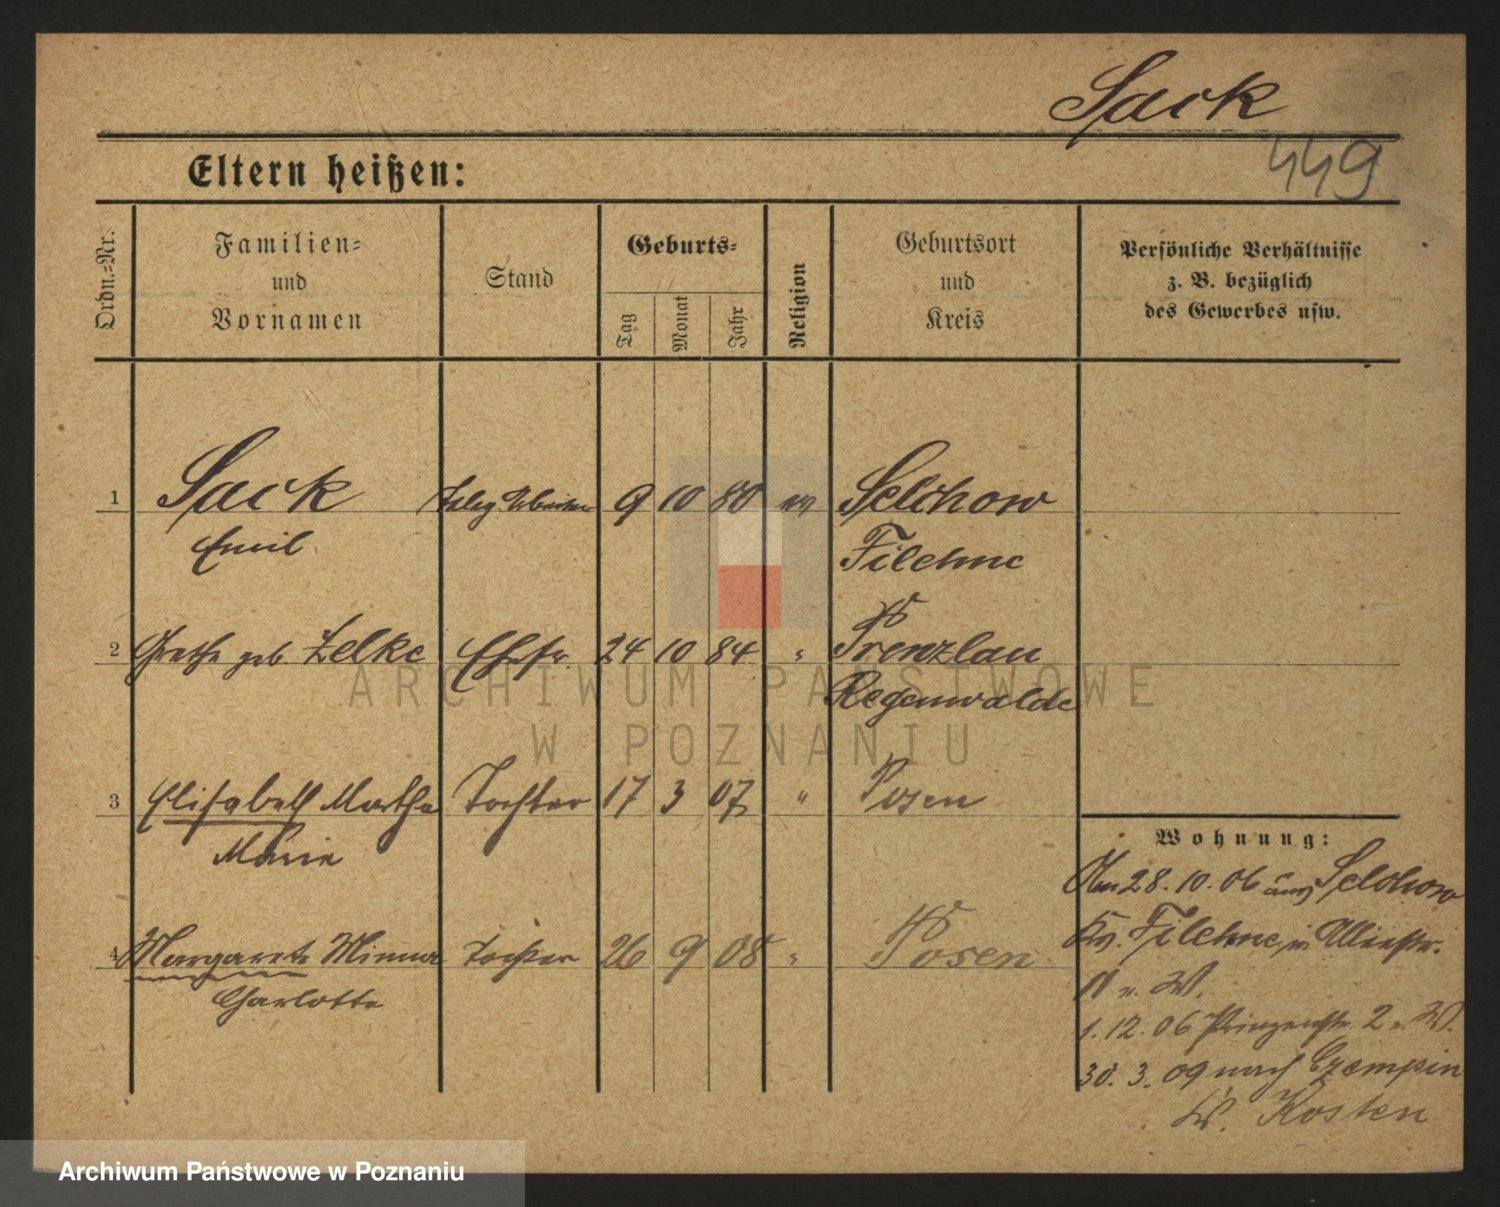 Sack
449
Eltern heißen:
Ordn.-Nr.
Familien-
und
Vornamen
Stand
Geburts-
Tag
Monat
Jahr
Religion
Geburtsort
und
Kreis
Persönliche Verhältnisse
z. B. bezüglich
des Gewerbes usw.
1 Sack 9 10 80 ev Selchow
Emil Filehne
2 Grethe geb. Zelke Ehefr. 24 10 84 " Prenzlau
Regenwalde
3 Elisabeth Martha Tochter 17 3 07 " Posen
Marie
4 Margarete Minna Tochter 26 9 08 " Posen
Charlotte
Wohnung:
Am 28. 10. 06 aus Selchow
Kr. Filehne,
11 v. W.
1. 12. 06 Prinzenstr. 2 v. W.
30. 3. 09 nach Czempin
Kr. Kosten
ARCHIWUM PAŃSTWOWE
W POZNANIU
Archiwum Państwowe w Poznaniu